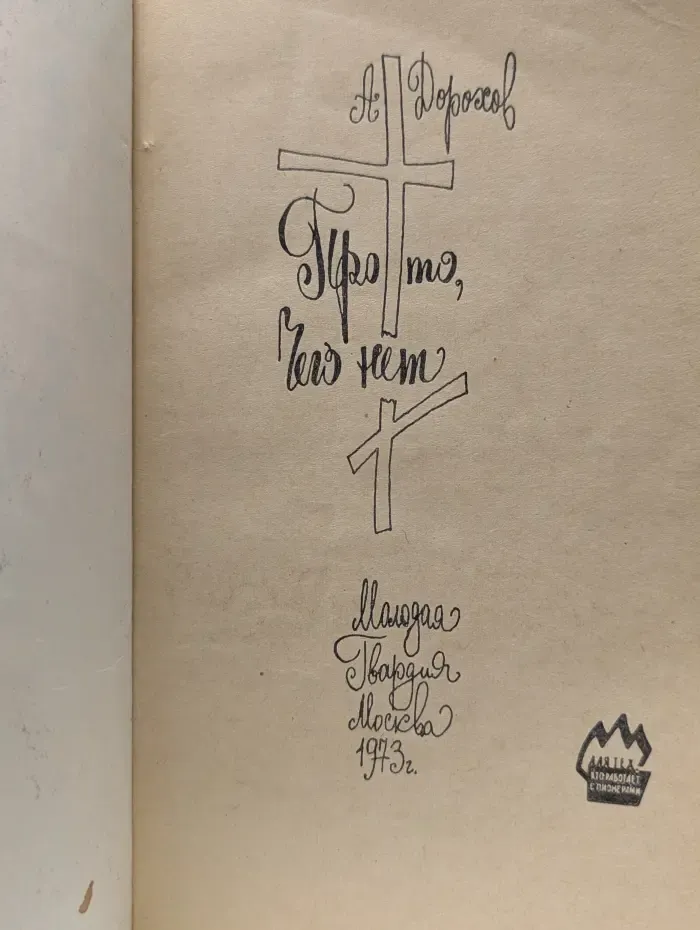 А Дорохов
Про то,
Чего нет
Молодая
Гвардия
Москва
1973г.
ДЛЯ ТЕХ,
КТО РАБОТАЕТ
С ПИОНЕРАМИ